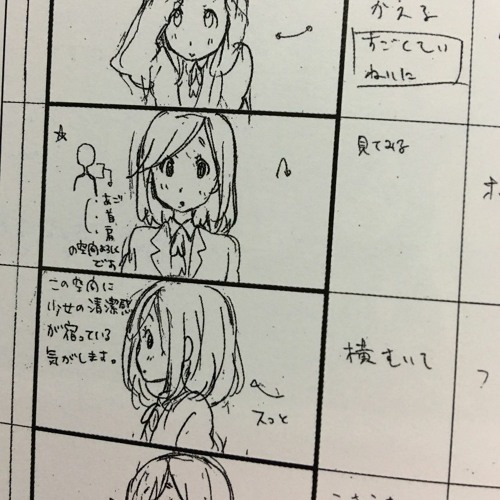 かえる
すごくてい
ねいに
見てみる
☆
あご
首
肩
の空間よろしく
です
この空間に
少女の清潔感
が宿っている
気がします。
横むいて
スっと